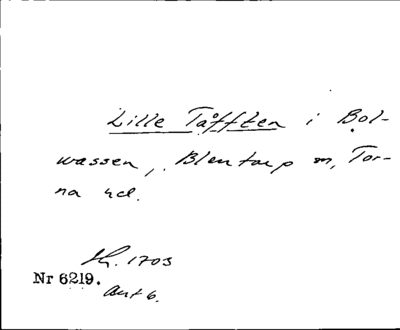 Lille Tåfften i Bol-
wassen, Blentarp m, Tor-
na hd.
Sk. 1703
Nr 6219.
Avt 6.